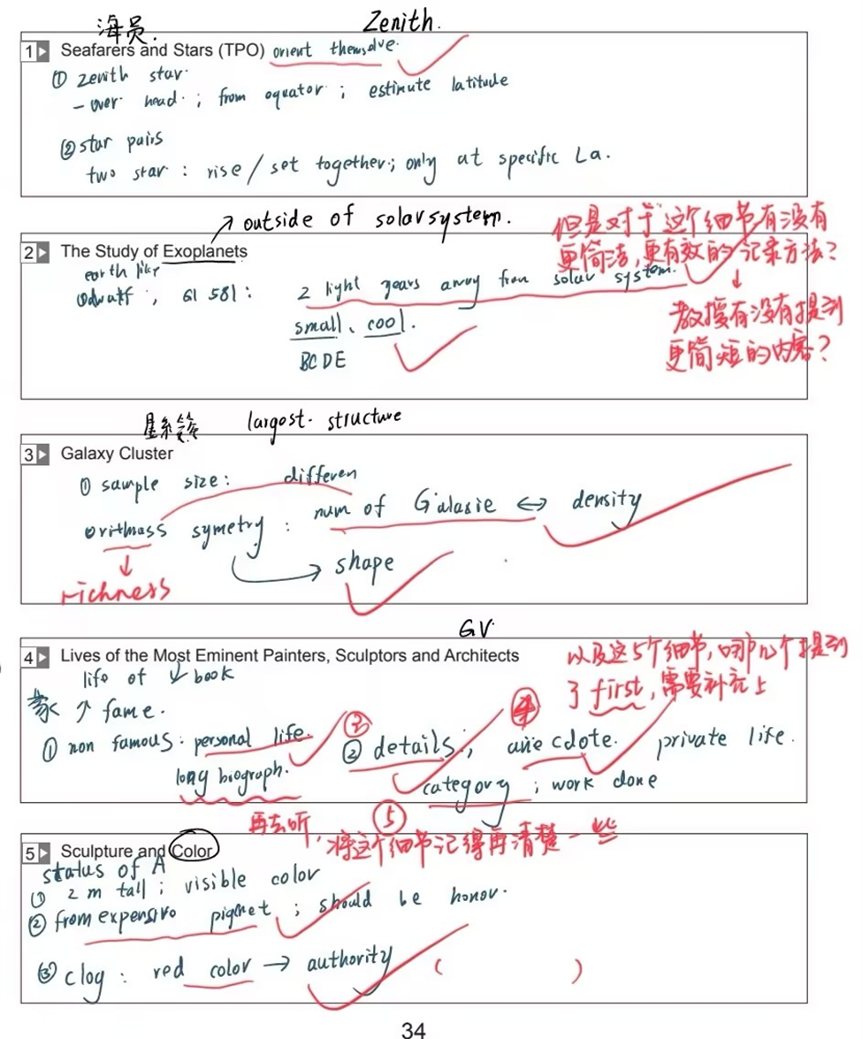 海员. Zenith.
1 Seafarers and Stars (TPO) orient themselve.
① zenith star.
- over head. ; from equator ; estimate latitude
② star pairs
two star : rise / set together; only at specific La.
↗ outside of solar system.
但是对于这个细节有没有
2 The Study of Exoplanets
更简洁,更有效的记录方法?
earth like
① dwarf ; Gl 581 : 2 light years away from solar system.
↓
教授有没有提到
small、cool.
更简短的内容?
BCDE
largest structure
3 Galaxy Cluster
① sample size : differen
symetry : num of Galaxie ⇔ density
↓
shape
richness
GV.
4 Lives of the Most Eminent Painters, Sculptors and Architects
以及这5个细节,哪几个提到
life of ↓ book
了 first,需要补充上
↑ fame.
① non famous : personal life. ③ ② details ; ane cdote. ④ private life.
long biograph. category ; work done
再去听, ⑤ 将这个细节记得再清楚一些
5 Sculpture and Color
status of A
① 2 m tall ; visible color
② from expensive pigmet ; should be honor.
③ clog : red color → authority ( )
34